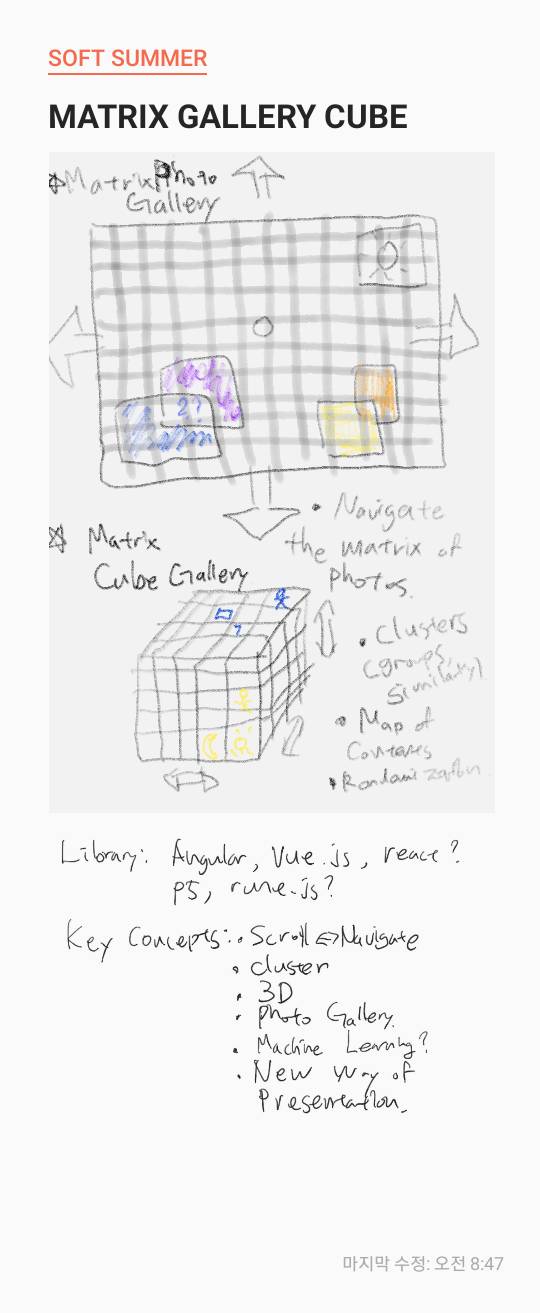 SOFT SUMMER
MATRIX GALLERY CUBE
Matrix Photo
Gallery
2?
• Navigate
the matrix of
photos.
Matrix
Cube Gallery
?
• Clusters
(groups,
similarity)
• Map of
Contents
• Randomization
Library: Angular, Vue.js, react?
P5, rune.js?
Key Concepts: • Scroll <=> Navigate
• cluster
• 3D
• Photo Gallery.
• Machine Learning?
• New Way of
Presentation.
마지막 수정: 오전 8:47